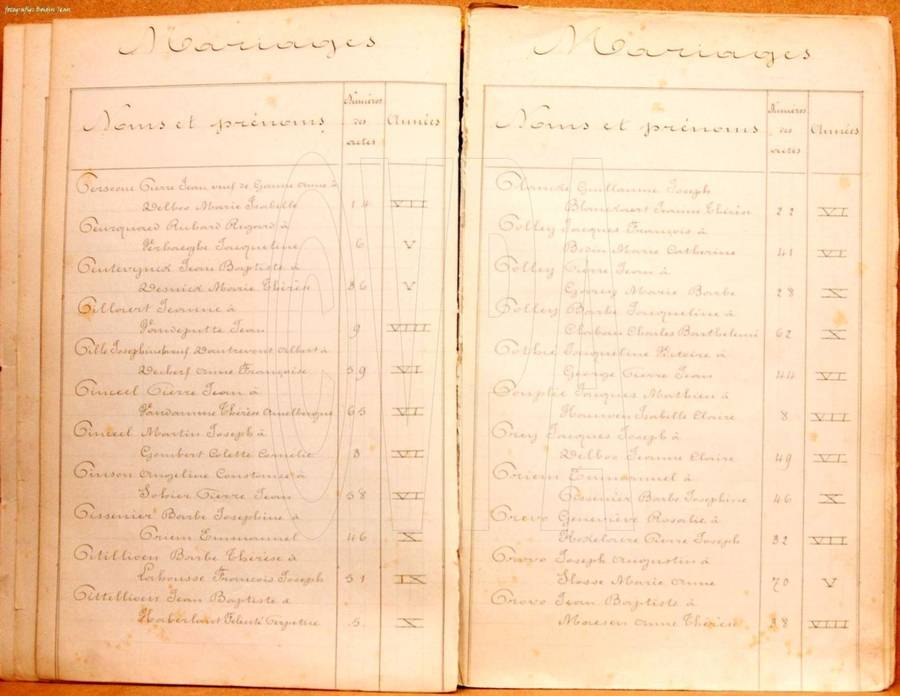 fotografies Boidin Jean
Mariages
Noms et prénoms
Numéros
des
actes
Années
Perseone Pierre Jean veuf de Ganne Anne à
Delbos Marie Isabelle 14 VII
Peurquaed Richard à
Verhaeghe Jacqueline 6 V
Jean Baptiste à
Desnied Marie Thérèse 36 V
Pillaert Jeanne à
Vandeputte Jean 9 VIII
Pille Josephine à
Decherf Anne Françoise 59 VI
Pinceel Pierre Jean à
Vandamme Thérèse 65 VI
Pinceel Martin Joseph à
Gombert Colette Cornélie 8 VI
Pinson Angeline Constance à
Pierre Jean 58 VI
Pissenier Barbe Josephine à
Priem Emmanuel 46 X
Pitillioen Barbe Thérèse à
Lahousse François Joseph 31 IX
Pittellioen Jean Baptiste à
Haberlant 5 X
Mariages
Noms et prénoms
Numéros
des
actes
Années
Guillaume Joseph
Blanckaert Jeanne Thérèse 22 VI
Polley Jacques François à
Marie Catherine 41 VI
Polley Pierre Jean à
Marie Barbe 28 X
Polley Barbe Jacqueline à
Charles Barthelemi 62 X
Jacqueline Victoire à
George Pierre Jean 44 VI
Jacques Mathieu à
Houwen Isabelle Claire 8 VII
Prey Jacques Joseph à
Delbos Jeanne Claire 49 VI
Priem Emmanuel à
Pissenier Barbe Josephine 46 X
Provo Geneviève Rosalie à
Hodelaire Pierre Joseph 32 VII
Provo Joseph Augustin à
Slosse Marie Anne 70 V
Provo Jean Baptiste à
Maesen Anne Thérèse 38 VIII